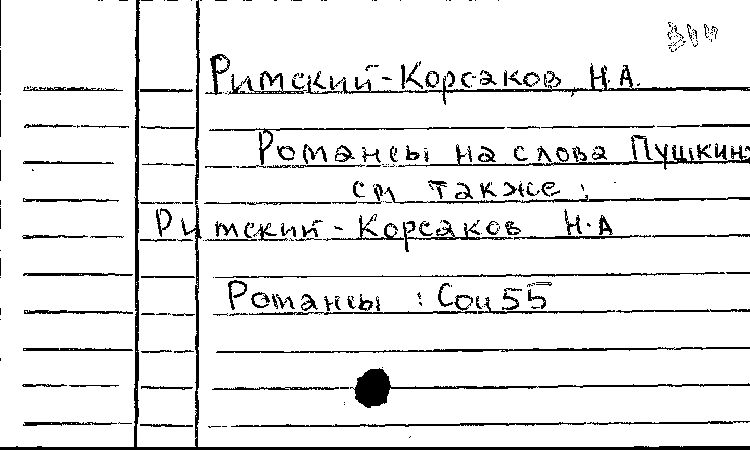 Римский-Корсаков, Н.А.
Романсы на слова Пушкина
см также:
Римский-Корсаков Н.А
Романсы : Соч 55